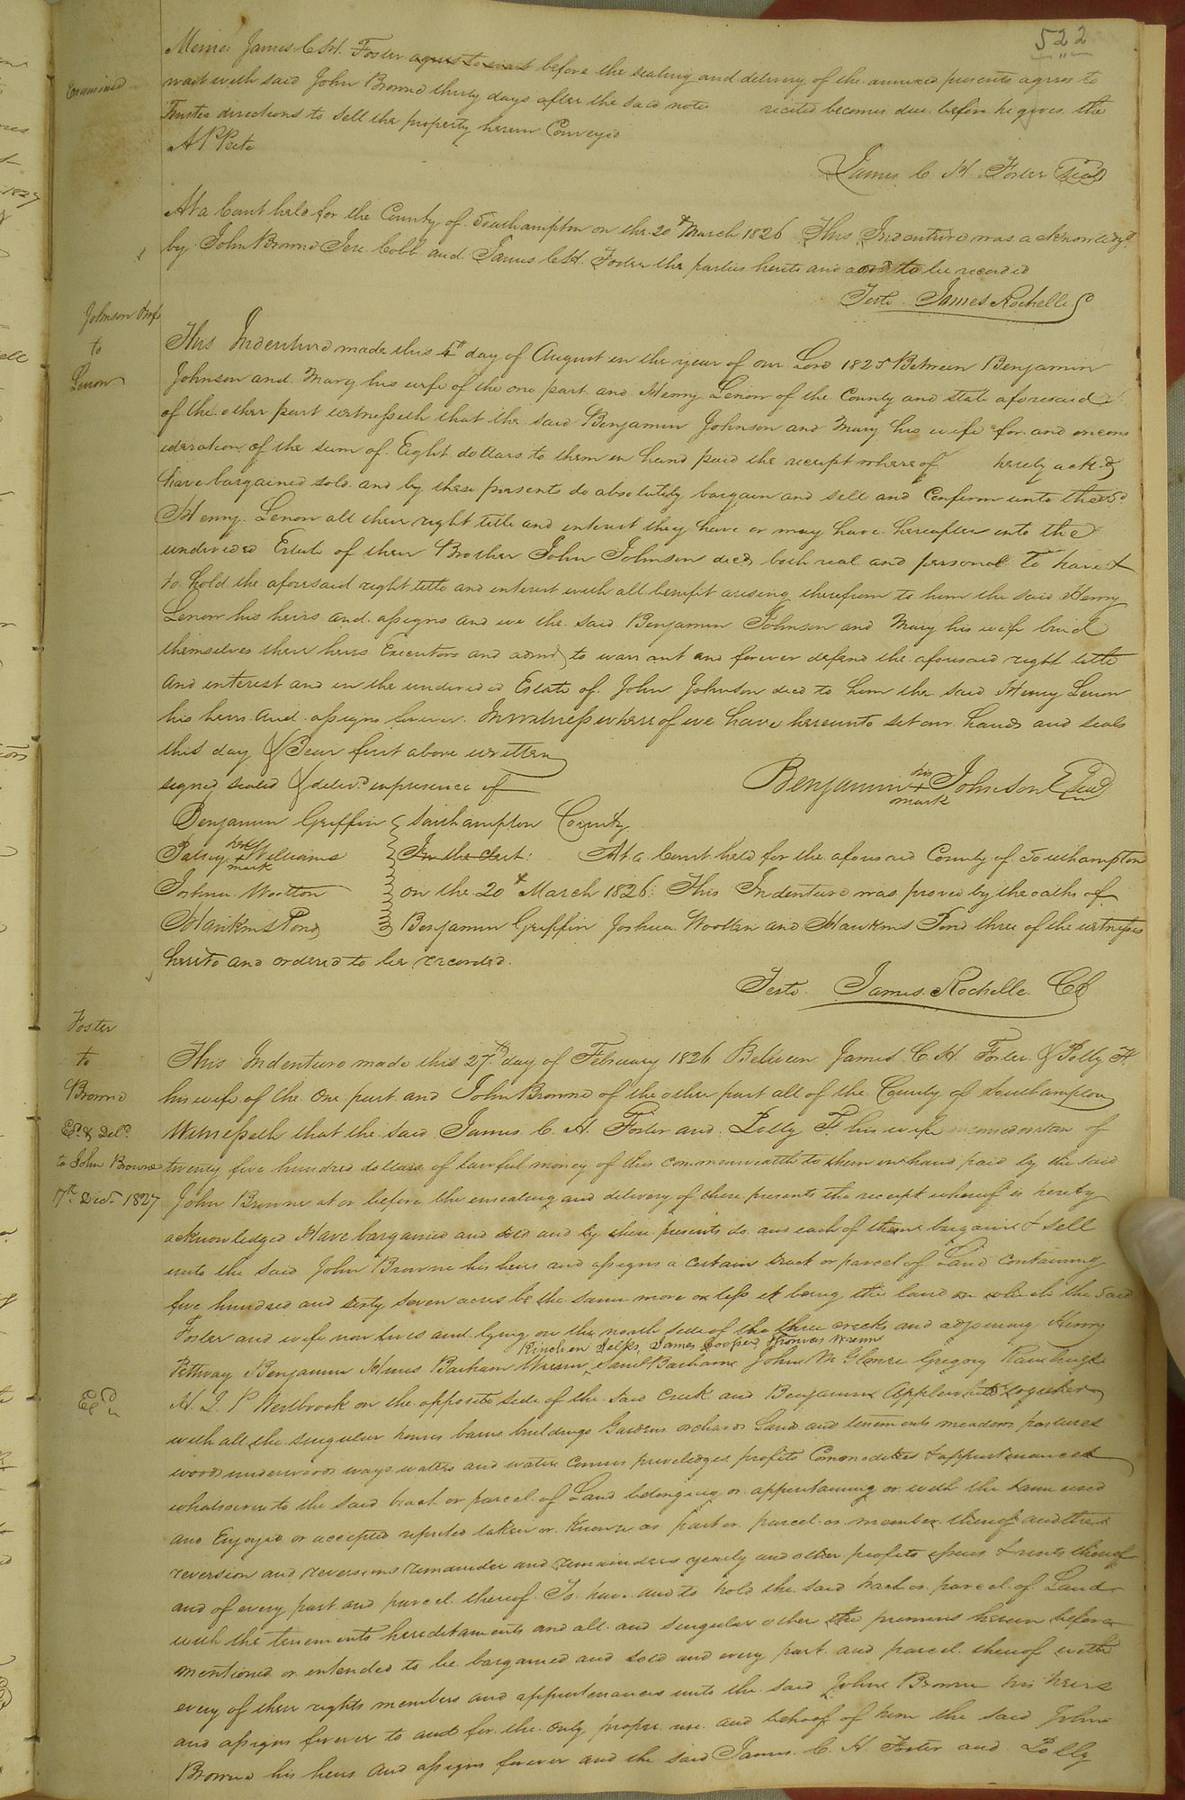 522
Examined
Memo. James C. H. Foster agrees to wait before the sealing and delivery of the annexed presents agrees to
wait with said John Browne thirty days after the said notes recited becomes due before he gives the
Trustee directions to sell the property herein Conveyed
A P Peete
James C. H. Foster Seal
At a Court held for the County of Southampton on the 20th March 1826 This Indenture was acknowledged
by John Browne Jere Cobb and James C. H. Foster the parties hereto and ord to be recorded
Teste James Rochelle C
Johnson & wife
to
Lenow
This Indenture made this 4th day of August in the year of our Lord 1825 Between Benjamin
Johnson and Mary his wife of the one part and Henry Lenow of the County and state aforesaid
of the other part witnesseth that the said Benjamin Johnson and Mary his wife for and in cons
ideration of the sum of Eight dollars to them in hand paid the receipt whereof hereby ackd
have bargained sold and by these presents do absolutely bargain and sell and Confirm unto the sd
Henry Lenow all their right title and interest they have or may have hereafter into the
undivided Estate of their Brother John Johnson decd both real and personal To have &
to hold the aforesaid right title and interest with all benefit arising therefrom to him the said Henry
Lenow his heirs and assigns and we the said Benjamin Johnson and Mary his wife bind
themselves their heirs Executors and admrs to warrant and forever defend the aforesaid right title
and interest and in the undivided Estate of John Johnson decd to him the said Henry Lenow
his heirs and assigns forever. In witness whereof we have hereunto set our hands and seals
this day & Year first above written
signed sealed & delivd in presence of
Benjamin his Johnson Seal
mark
Benjamin Griffin
Patsey her Williams
mark
Joshua Wootten
Hawkins Pond
Southampton County
In the Clert: At a Court held for the aforesaid County of Southampton
on the 20th March 1826. This Indenture was proved by the oaths of
Benjamin Griffin Joshua Wootten and Hawkins Pond three of the witnesses
hereto and ordered to be recorded.
Teste. James Rochelle. CC
Foster
to
Browne
Ed. & Deld.
to John Browne
7th Decr 1827
This Indenture made this 27th day of February 1826 Between James C. H. Foster & Polly F.
his wife of the one part and John Browne of the other part all of the County of Southampton
Witnesseth that the said James C. H. Foster and Polly F. his wife in consideration of
twenty five hundred dollars of lawful money of this commonwealth to them in hand paid by the said
John Browne at or before the ensealing and delivery of these presents the receipt whereof is hereby
acknowledged Have bargained and sold and by these presents do and each of them bargain & sell
unto the said John Browne his heirs and assigns a certain tract or parcel of Land containing
five hundred and sixty seven acres be the same more or less it being the land on which the said
Foster and wife now lives and lying on the north side of the three creeks and adjoining Henry
Rinchen Delk, James Cooper, Frances Wrenn
Pittway Benjamin Hines Barham Wrenn, Saml Barham John M. Gregory
H. J. P. Westbrook on the opposite side of the said creek and Benjamin Applewhite together
Ed
with all the singular houses barns buildings Gardens orchards Land and tenements meadows pastures
woods underwoods ways waters and water courses priveledges profits Commodities & appurtenances
whatsoever to the said tract or parcel of Land belonging or appertaining or with the same used
and Enjoyed or accepted reputed taken or known as part or parcel or member thereof and the
reversion and reversions remainder and remainders yearly and other profits issues & rents thereof
and of every part and parcel thereof To have and to hold the said tract or parcel of Land
with the tenements hereditaments and all and singular other the premises herein before
mentioned or intended to be bargained and sold and every part and parcel thereof with
every of their rights members and appurtenances unto the said John Browne his heirs
and assigns forever to and for the only proper use and behoof of him the said John
Browne his heirs and assigns forever and the said James C. H. Foster and Polly